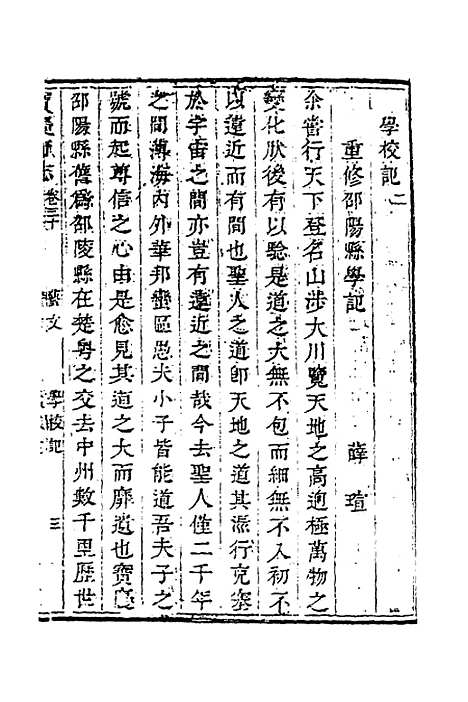 學校記二
重修邵陽縣學記 薛瑄
余嘗行天下登名山涉大川覽天地之高逈極萬物之
變化肰後有以騐是道之大無不包而細無不入初不
以遠近而有間也聖人之道卽天地之道其流行充塞
於宇宙之間亦豈有遠近之間哉今去聖人僅二千年
之間薄海內外華邦蠻區愚夫小子皆能道吾夫子之
號而起尊信之心由是愈見其道之大而靡遺也寶慶
邵陽縣舊爲邵陵縣在楚粵之交去中州數千里歷世
寶慶 志 卷三十 藝文 學校記 三